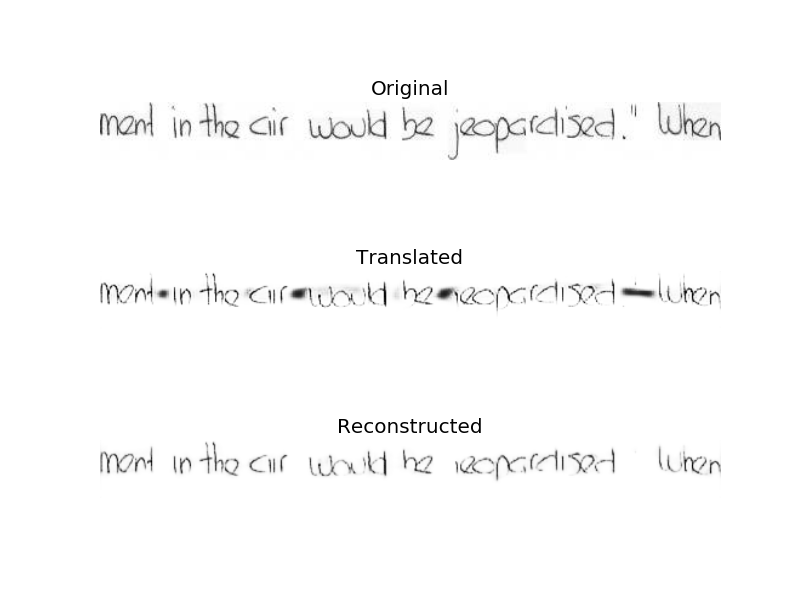 Original
ment in the air would be jeopardised." When
Translated
ment in the air would be jeopardised When
Reconstructed
ment in the air would be jeopardised When